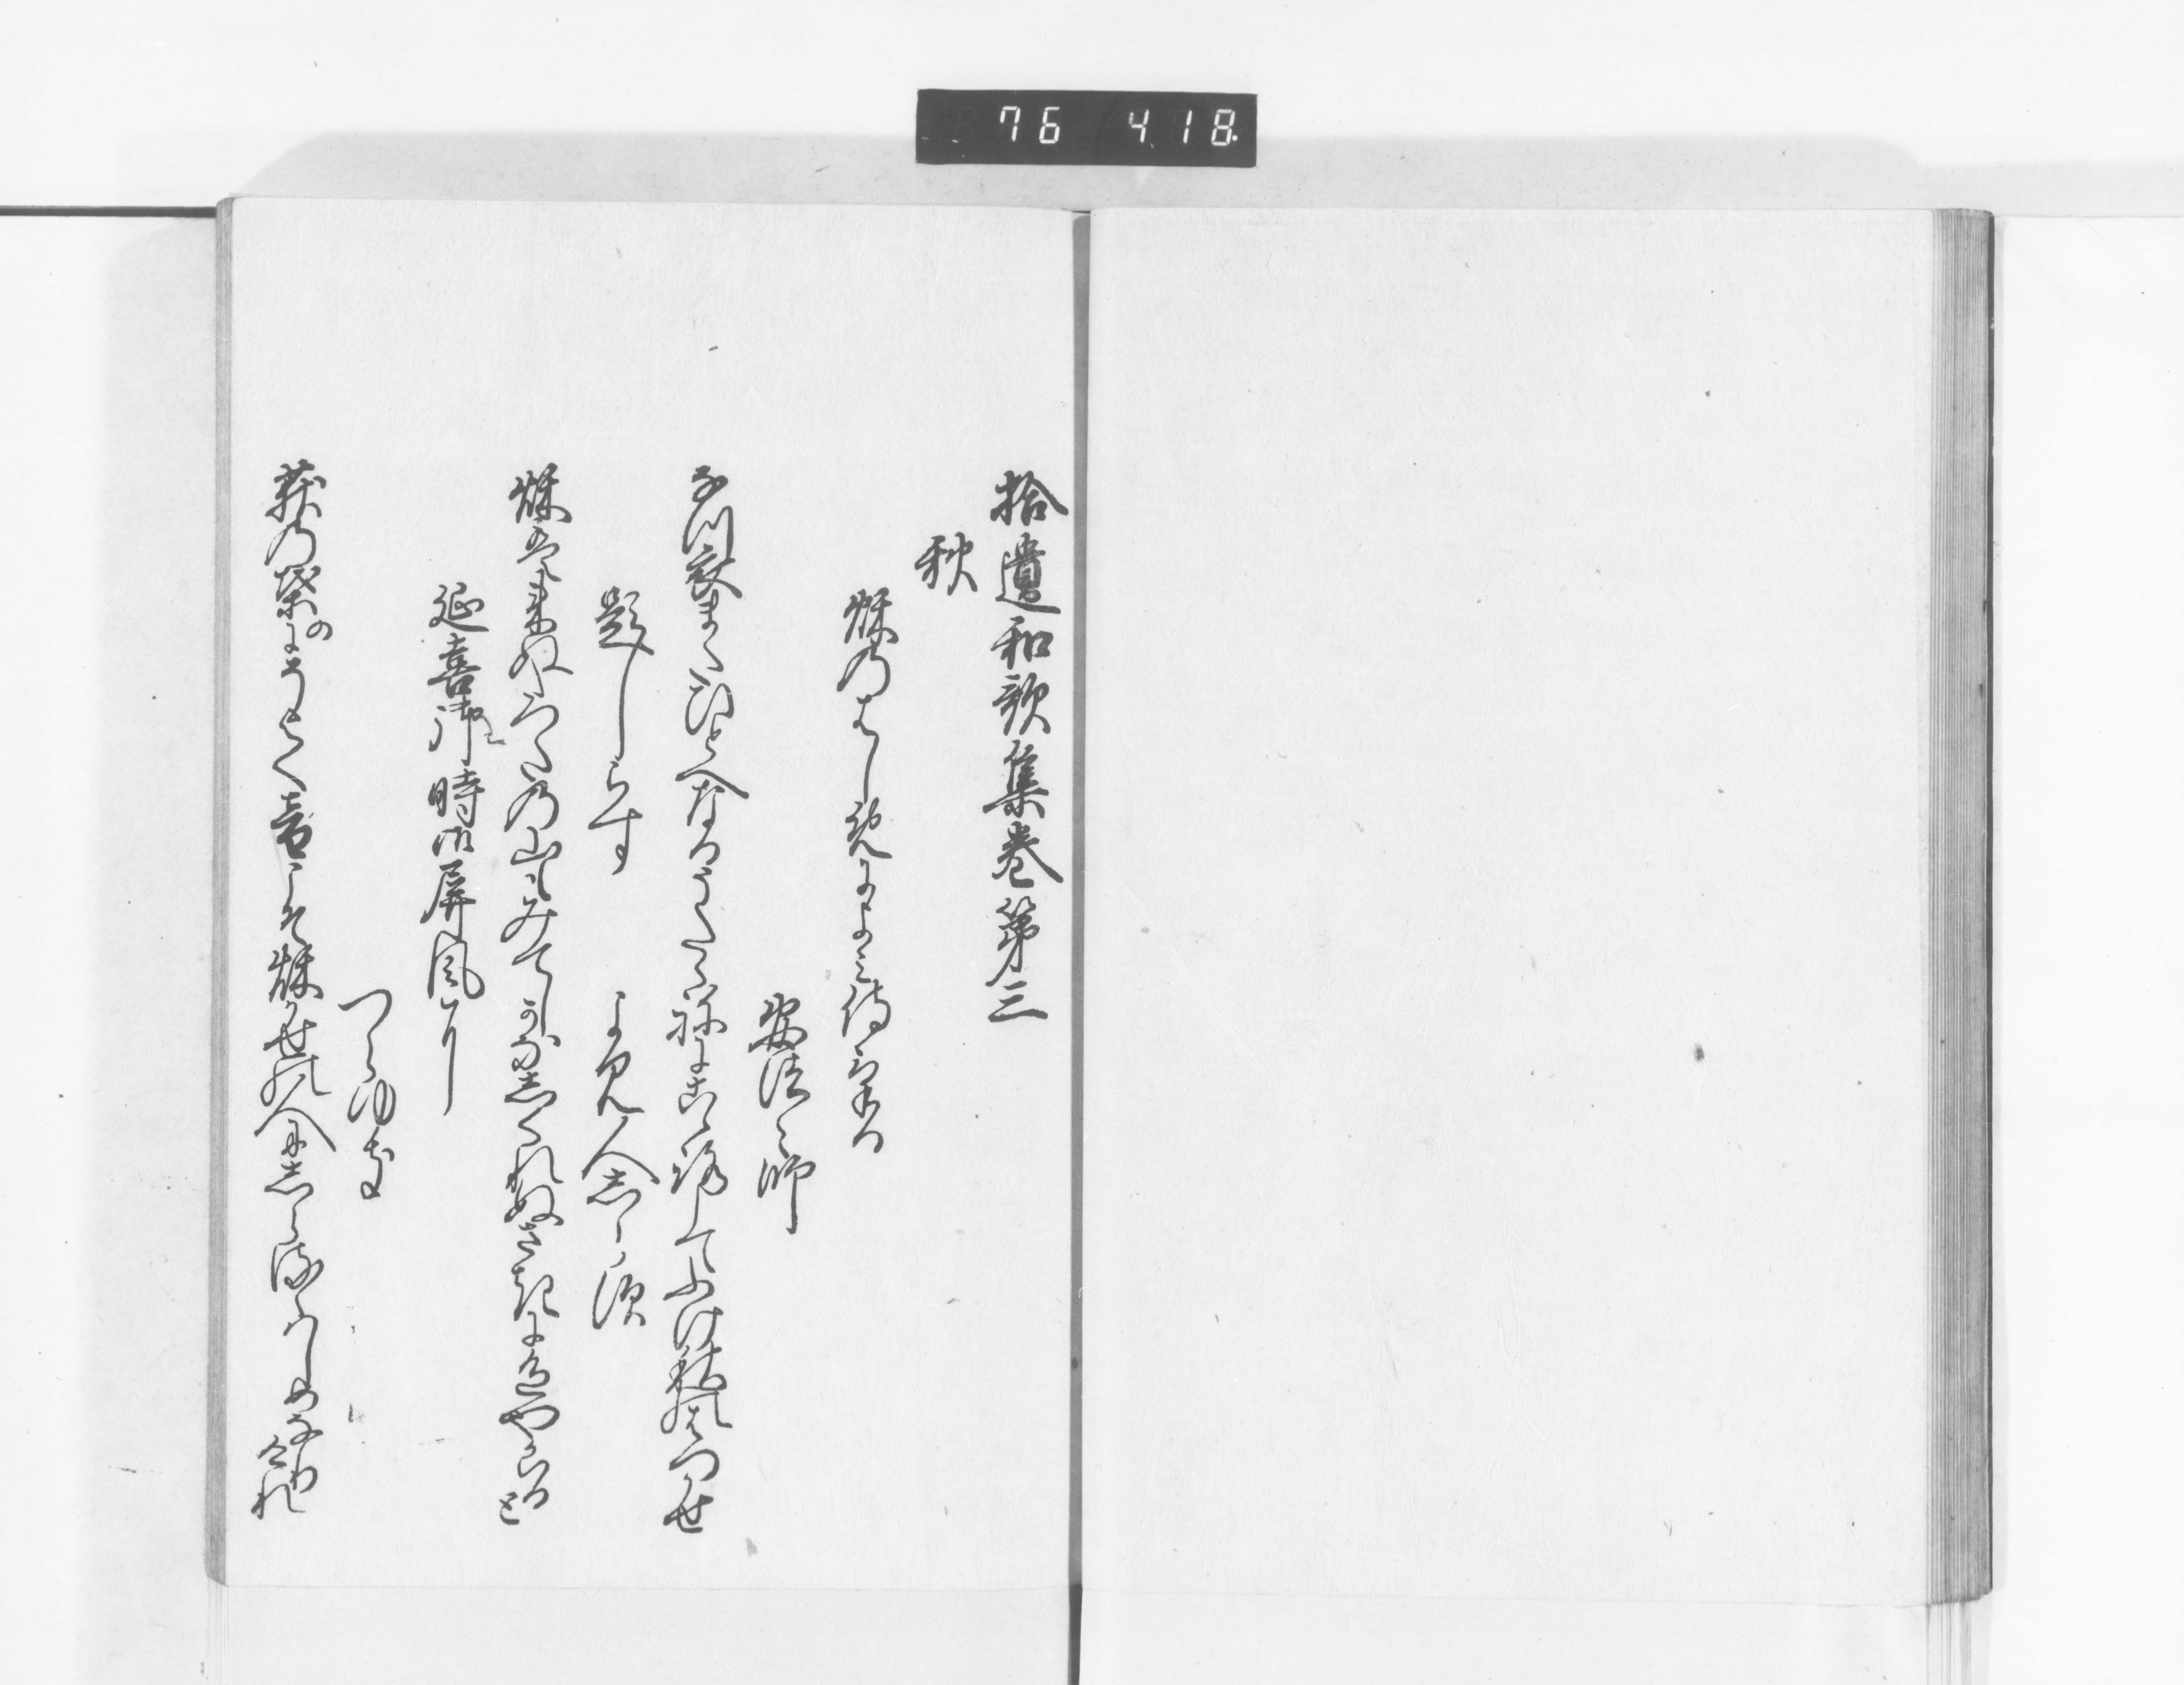 76 418
拾遺和歌集巻第三
秋
秋のはしめによみ侍ける
安法々師
なつ衣またひとへなるうたゝねにこゝろしてふけ秋のはつかせ
題しらす よみ人しらす
秋は来ぬたつたの山もみてしかなしくれぬさきに色やかはると
延喜御時御屏風に
つらゆき
荻の葉に
の
そよく音こそ秋かせの人にしらるゝはしめなりけれ